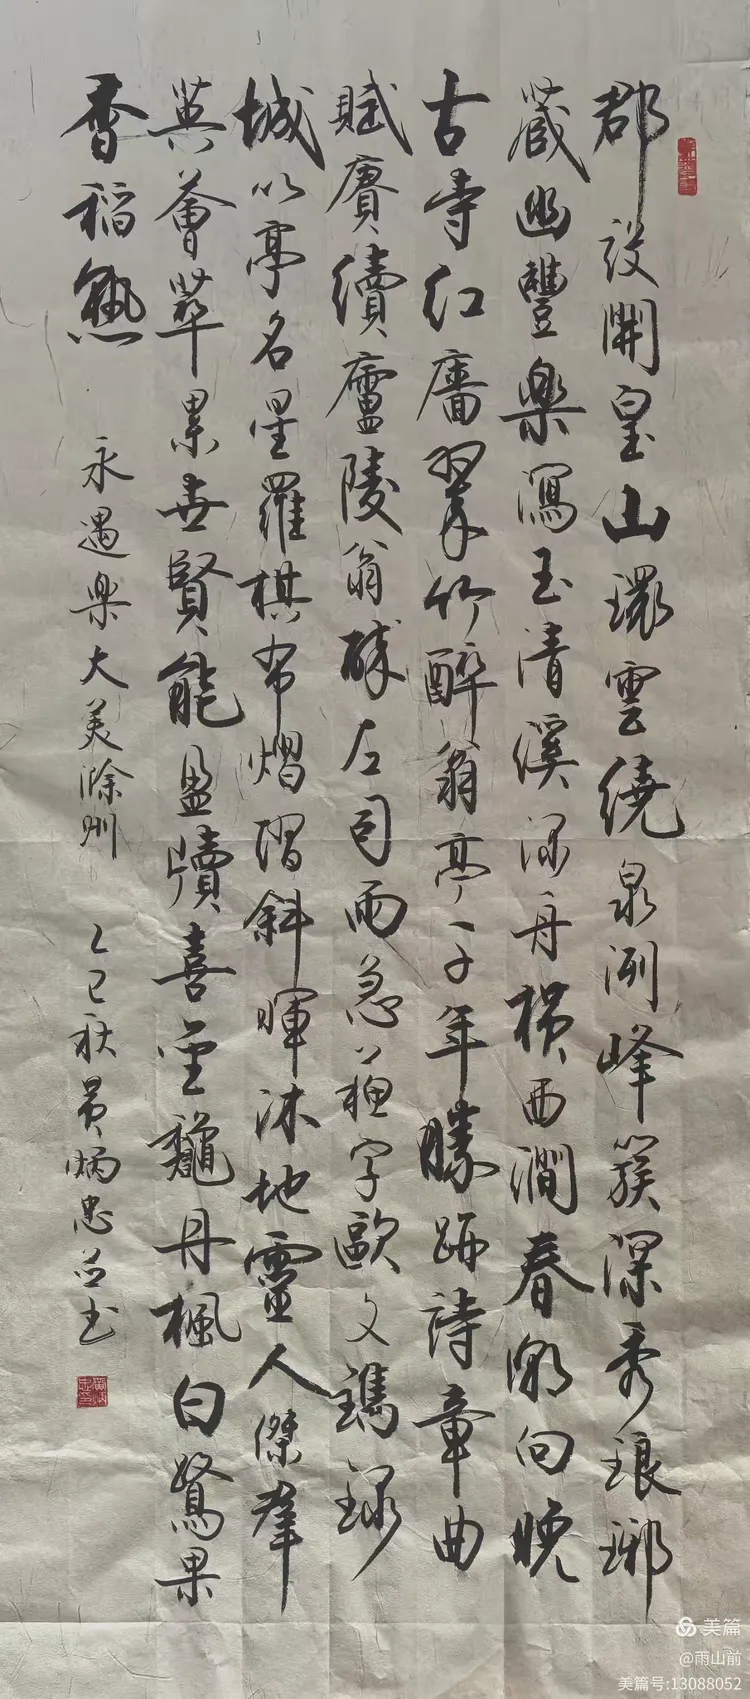 郡設開皇山環雲繞泉洌峰簇深秀琅琊
蔵幽豐樂瀉玉清溪深舟橫西澗春潮向晚
古寺紅牆翠竹醉翁亭千年勝跡詩章曲
賦賡續廬陵翁醉左司雨急蘇字歐文鐫錄
城以亭名星羅棋布熠熠斜暉沐地靈人傑羣
英薈萃累世賢能盈牘喜望龝丹楓白鷺果
香稻熟
永遇樂大美滁州
乙巳秋黄炳忠并书
美篇
@雨山前
美篇号:13088052